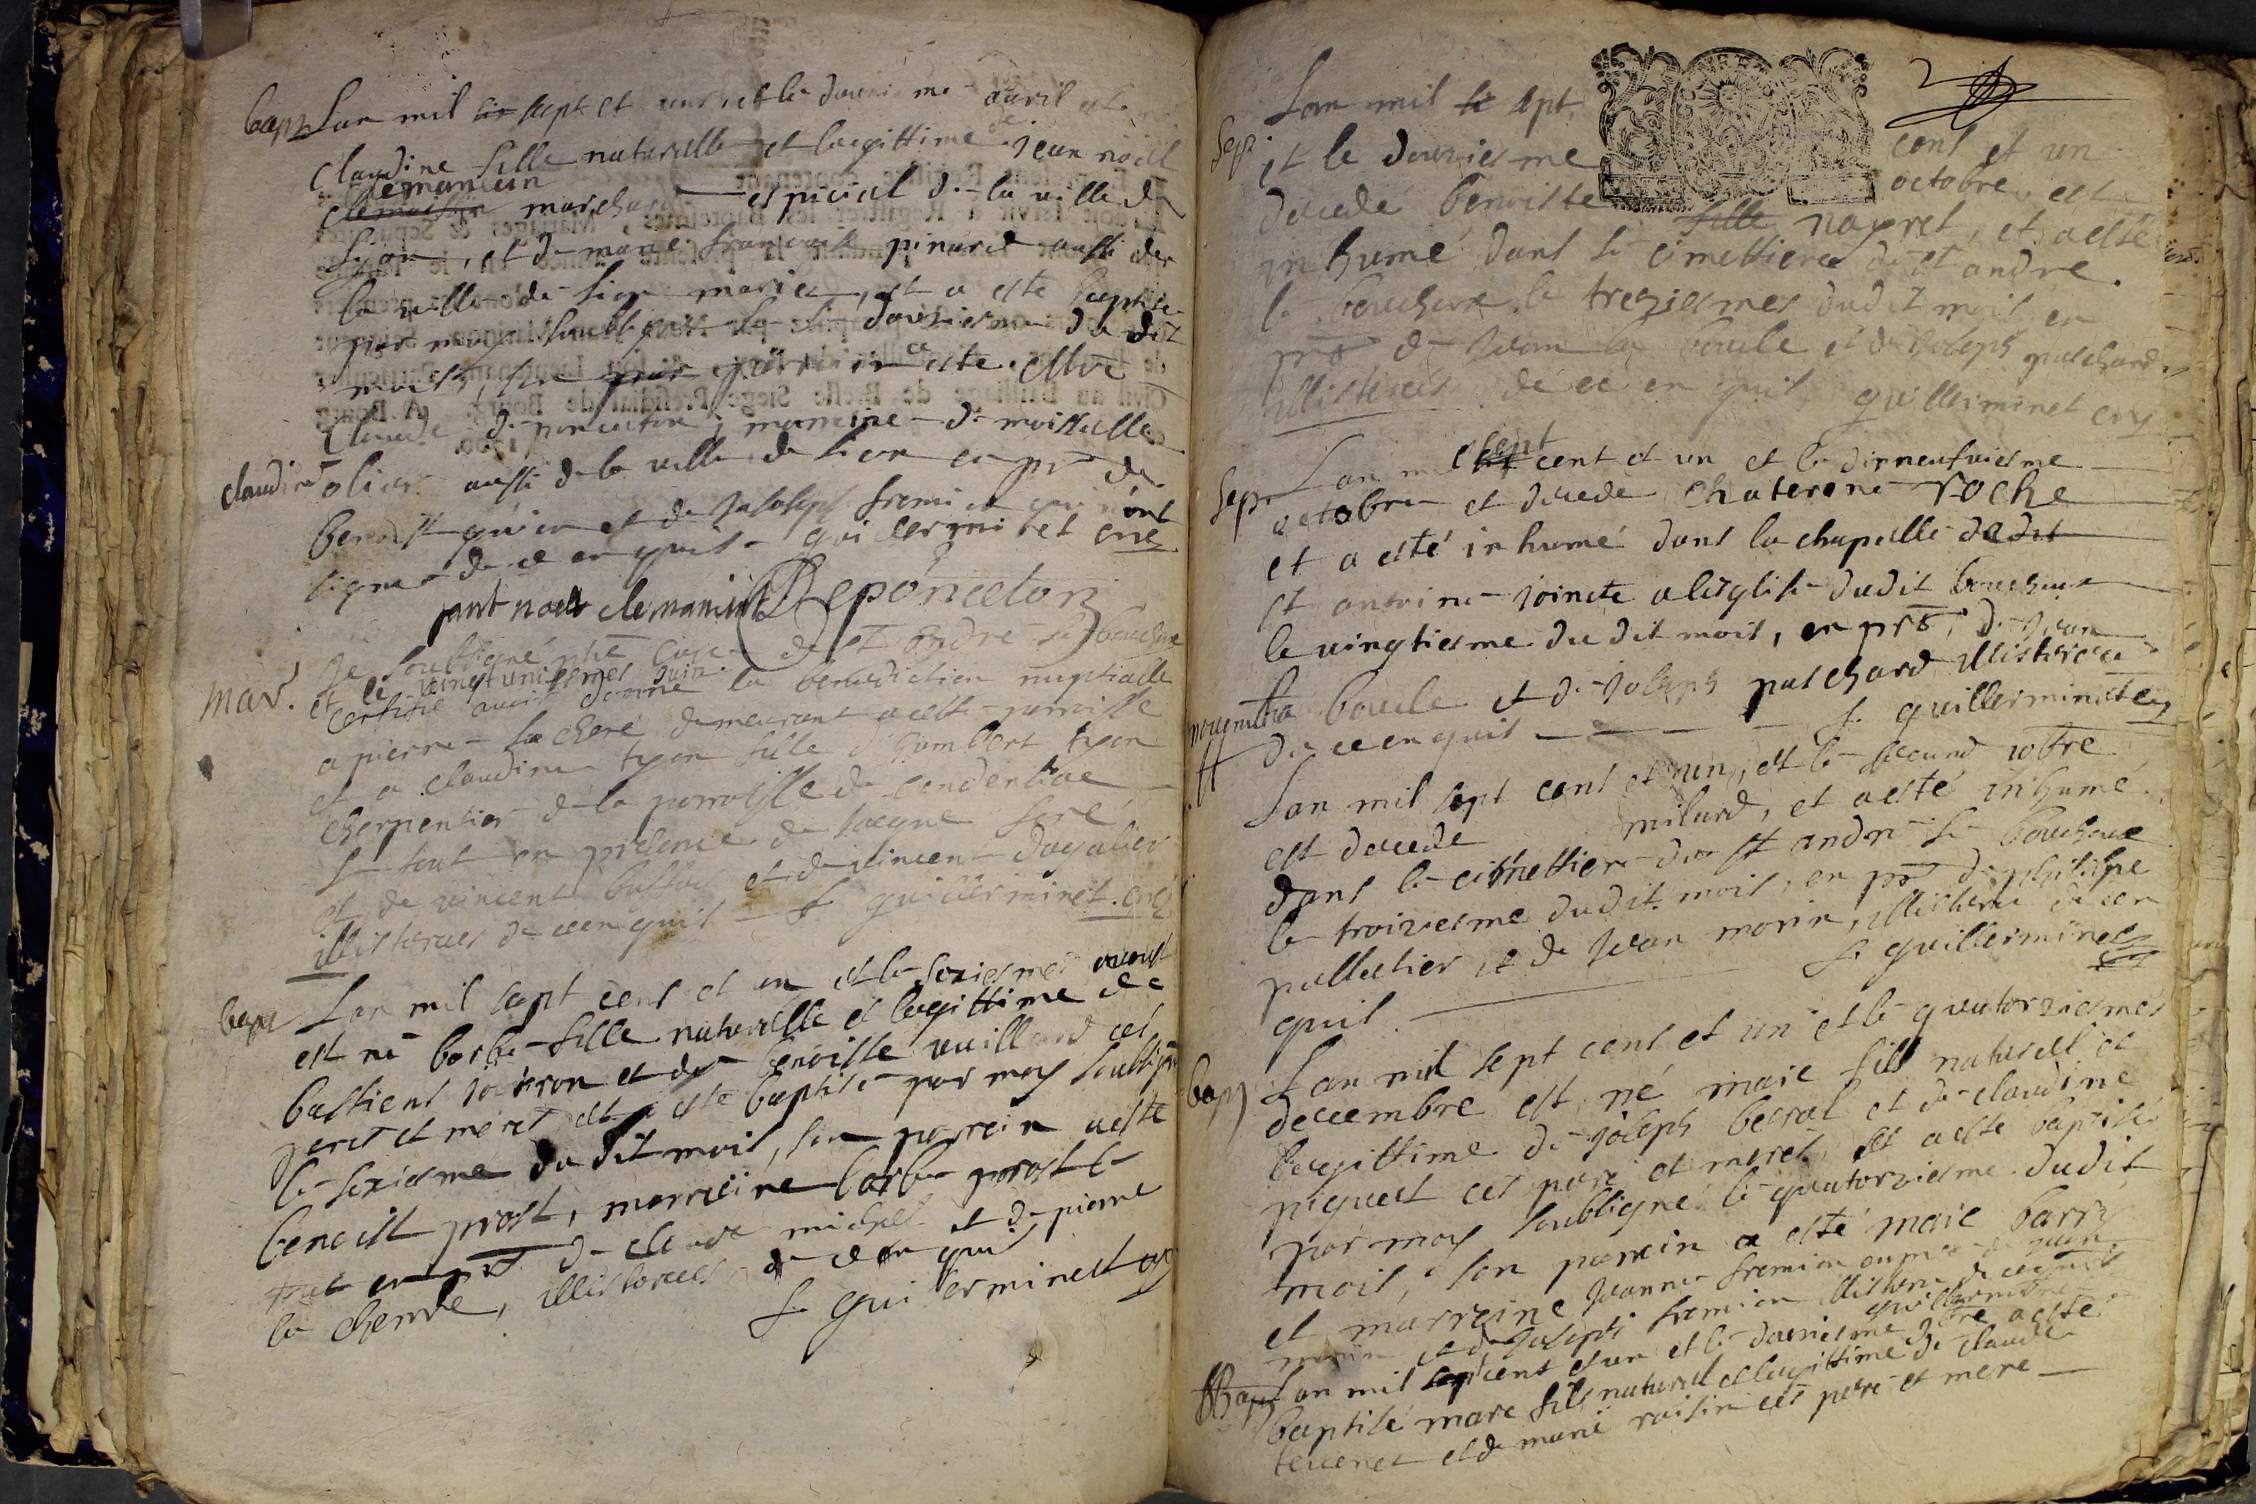 bapz Lan mil six sept et un et le douziesme auril est
Claudine fille naturelle et legittime de Jean noiel
clemancin
clemansin marchard espicial de la ville de
Lyon, et de marie francoise pinard aussi de
la ville de lion mariez, et a este baptisé
par moy soubsigné le douziesme du dit
mois, son parrain a este Mre
Claude de ponceton, marreine de moiselle
claudine olier aussi de la ville de lion en prce de
benoist et de Joseph fremion qui nont
signe de ce enquis guillerminet curé
jant noel clemanint Deponceton
mar. Je soubsigné ptre Curé de st andre le bouchoux
et le vingt uniesmes juin
certifie auoir donné la benediction nuptialle
a pierre la chere demeurant a ceste parroisse
et a claudine tyon fille d humbert tyon
cherpentier de la parroisse de condentiae
le tout en presence de Jacque fore
et de vincent et de vincent dagalier
illisterees de ce enquis f guillerminet curé
bapz Lan mil sept cent et un et le seziesmes aoust
est né barbe fille naturelle et legittime de
bastient joisron et de benoiste vuillard ces
peres et meres et a este baptisé par moy soubsigné
le seziesme du dit mois, son parrein a este
benoist prost, marreine barbe prost le
tout en prce de claude michel et de pierre
la cherde, illisterees de ce en quis
f guillerminet cu
Lan mil si sept cent et un
Sepz et le douziesme octobre est
decedé benoiste fille nayret, et a esté
inhumé dans le cimettiere de st andre
le bouchoux le treziesmes dudit mois en
prce de Jean la boucle et de Joseph patchard
illisterees de ce en quis guillerminet curé
Sepz Lan mil sept cent et un et le dixneufuiesme
octobre et decede chaterene roche
et a esté inhumé dans la chapelle dedit
st antoine joincte a lesglise dudit bouchoux
le vingtiesme du dit mois, en prce, de Jean
nouembre la boucle et de Joseph patchard illisteree
de ce en quis f guillerminet cu
Lan mil sept cent et un, et le second 10bre
est decede milurd, et a esté inhumé
dans le cimettiere de st andre le bouchoux
le troiziesme dudit mois, en prce de philipe
pelletier et de Jean morin, illisteree de cen
quis f guillerminet cu
bapz Lan mil sept cent et un et le quatorziesmes
decembre est né marie fils naturel et
legittime de Joseph berrot et de claudine
piquet ces pere et meres et a este baptisé
par moy soubsigné le quatorziesme dudit
mois, son parrein a esté marc barry
et marreine Jeanne fremion en prce de Jean
morin et de Joseph fremion illisteree de ce enquis
guillerminet
Bapz Lan mil sept cent et un et le douziesme xbre a esté
baptisé marc fils naturel et legittime de claude
teuenet et de marie raisin ces pere et mere